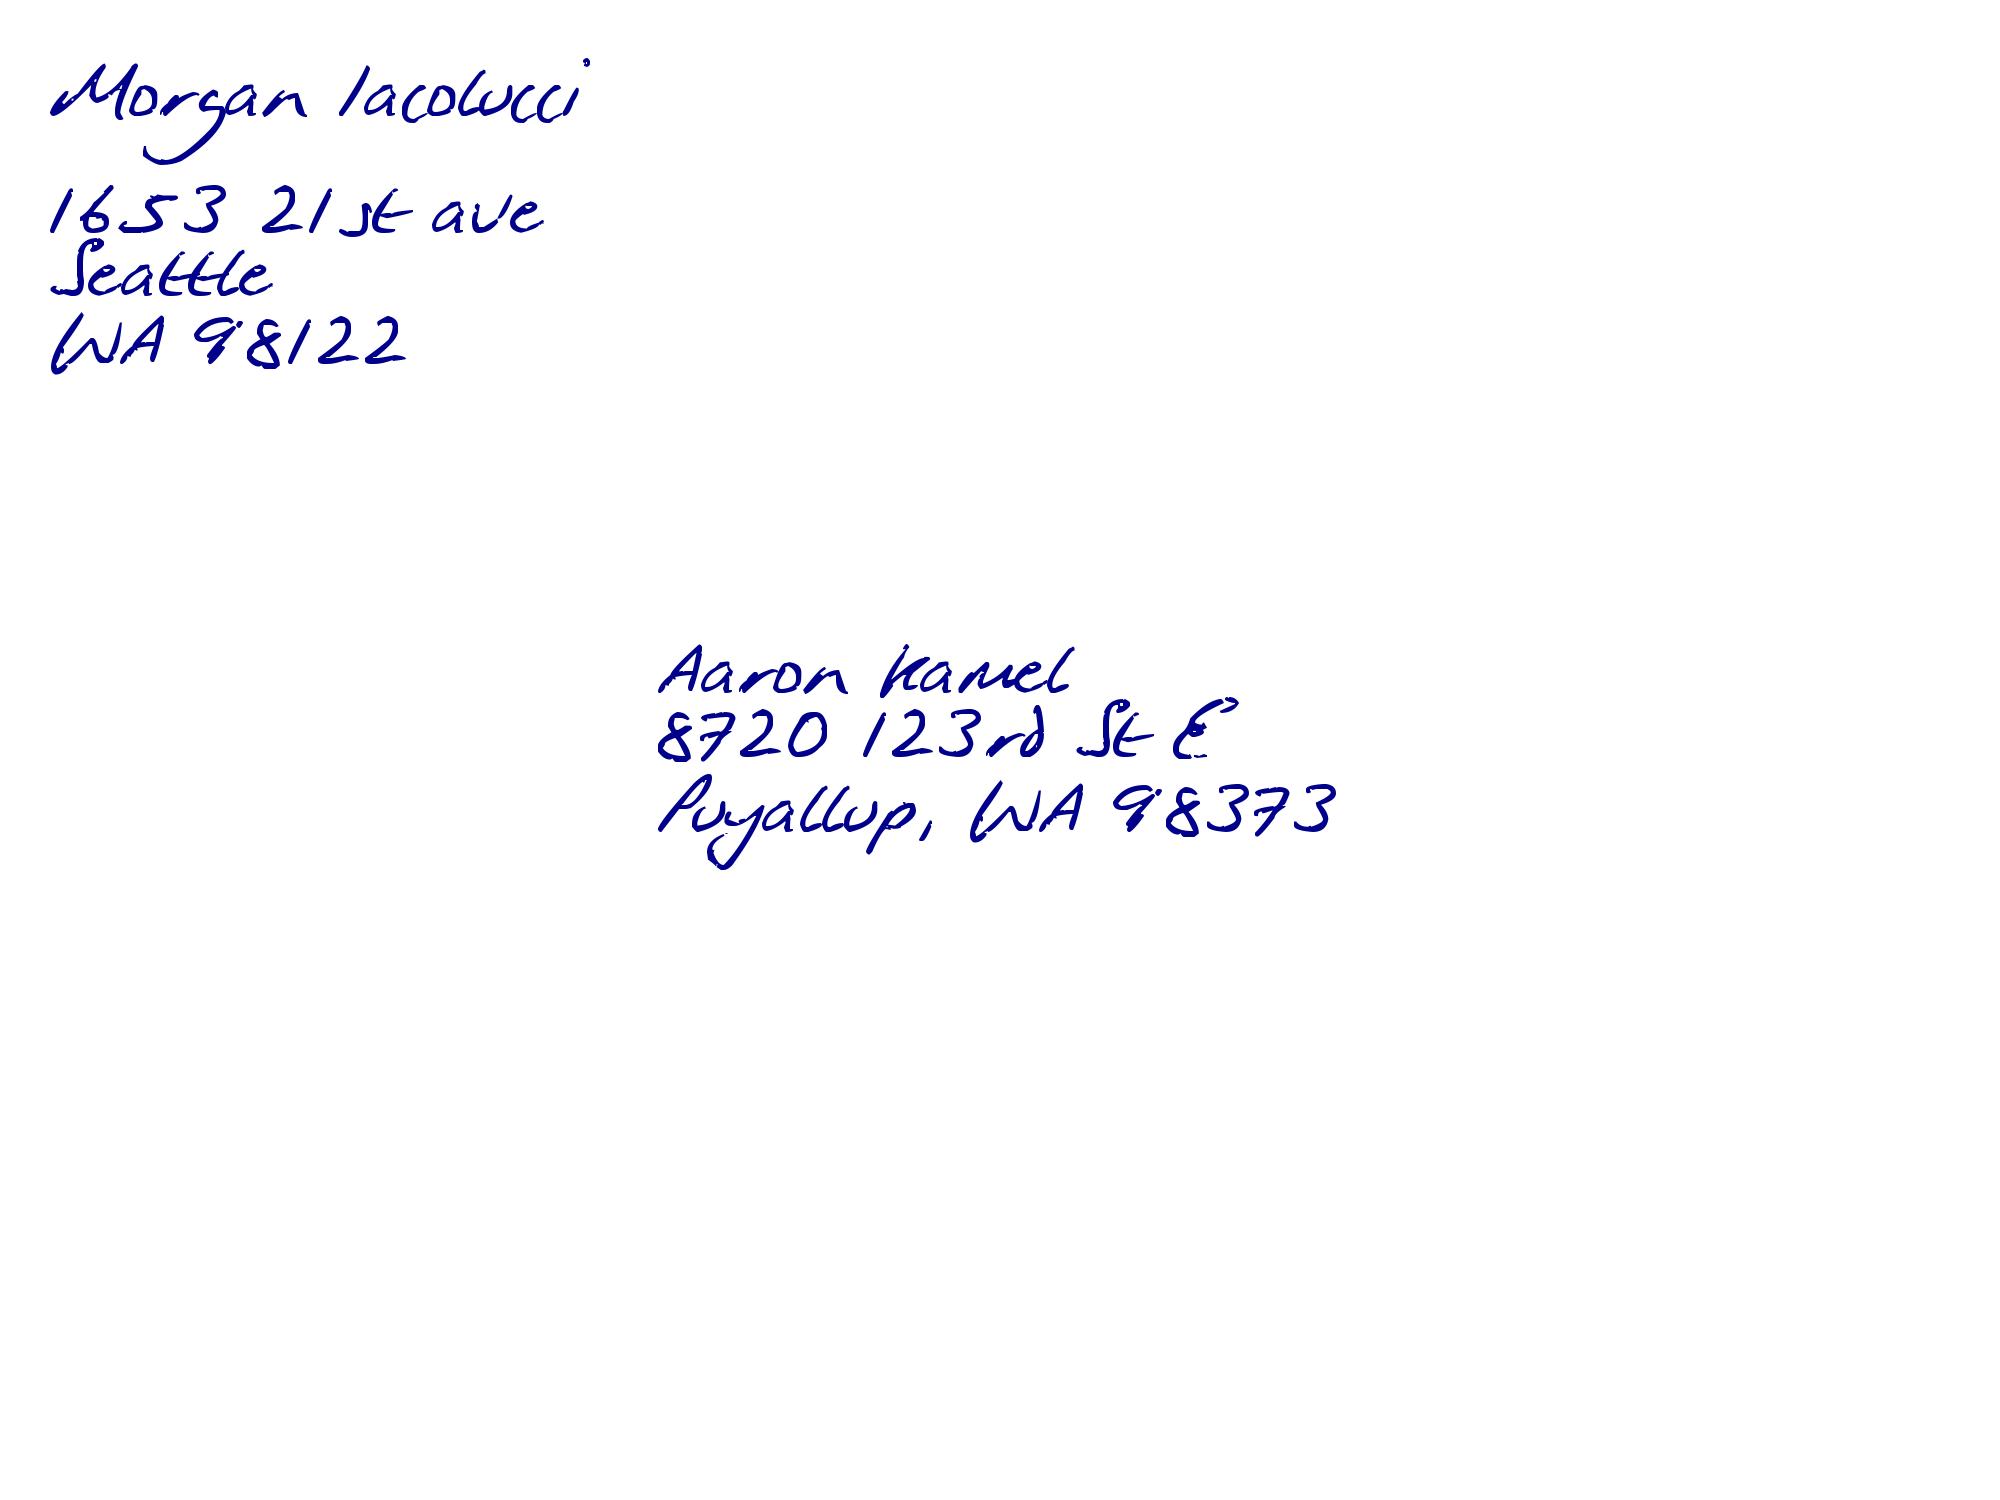 Morgan Iacolucci
1653 21st ave
Seattle
WA 98122
Aaron Kamel
8720 123rd St E
Puyallup, WA 98373